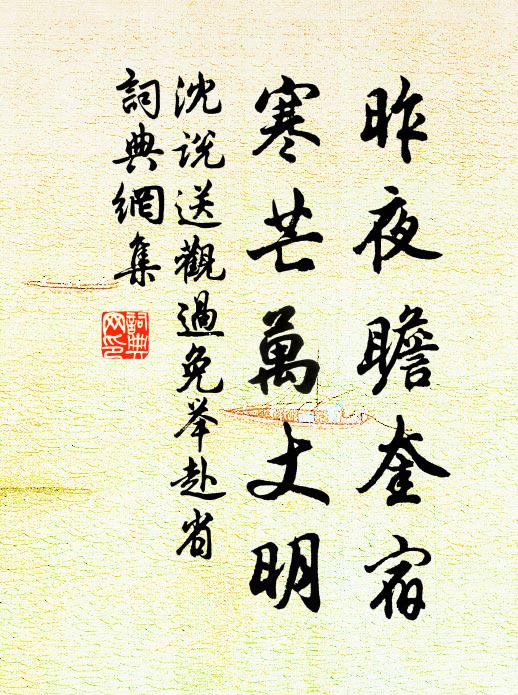 昨夜瞻奎宿
寒芒萬丈明
沈说送觀過免举赴省
詞典網集
詞典網印